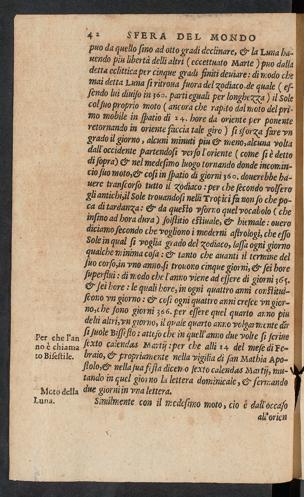 42 SFERA DEL MONDO
puo da quello sino ad otto gradi declinare, & la Luna ha-
uendo piu libertà delli altri (eccettuato Marte) puo dalla
detta eclittica per cinque gradi finiti deuiare: di modo che
mai detta Luna si ritroua fuora del zodiaco. de quale (es-
sendo lui diuiso in 360. parti eguali per longhezza) il Sole
col suo proprio moto (ancora che rapito dal moto del pri-
mo mobile in spatio di 24. hore da oriente per ponente
retornando in oriente faccia tale giro) si sforza fare vn
grado il giorno, alcuni minuti piu & meno, alcuna volta
dall occidente partendosi verso l'oriente (come si è detto
di sopra) & nel medesimo luogo tornando donde incomin-
cio suo moto, & cosi in spatio di giorni 360. douerebbe ha-
uere trascorso tutto il zodiaco: per che secondo volsero
gli antichi, il Sole trouandosi nelli Tropici fa non so che po-
ca di tardanza: & da questo vsorno quel vocabolo (che
insino ad hora dura) solstitio estiuale, & hiemale: ouero
diciamo secondo che vogliono i moderni astrologi, che esso
Sole in qual si voglia grado del zodiaco, lassa ogni giorno
qualche minima cosa: & tanto che auanti il termine del
suo corso, in vno anno, si trouono cinque giorni, & sei hore
superflui: di modo che l'anno viene ad essere di giorni 365.
& sei hore: le quali hore, in ogni quattro anni constitui-
scono vn giorno: & cosi ogni quattro anni cresce vn gior-
no, che sono giorni 366. per essere quel quarto anno piu
delli altri, vn giorno, il quale quarto anno volgarmente dir
si suole Bissesto: atteso che in quell'anno due volte si scriue
sexto calendas Martij: per che alli 24 del mese di Fe-
braio, & propriamente nella vigilia di san Mathia Apo-
stolo, & nella sua festa diceno sexto calendas Martij, mu-
tando in quel giorno la lettera dominicale, & fermando
due giorni in vna lettera.
Similmente con il medesimo moto, cio è dall'occaso
all'orien
Per che l'an
no è chiama
to Bisestile.
Moto della
Luna.